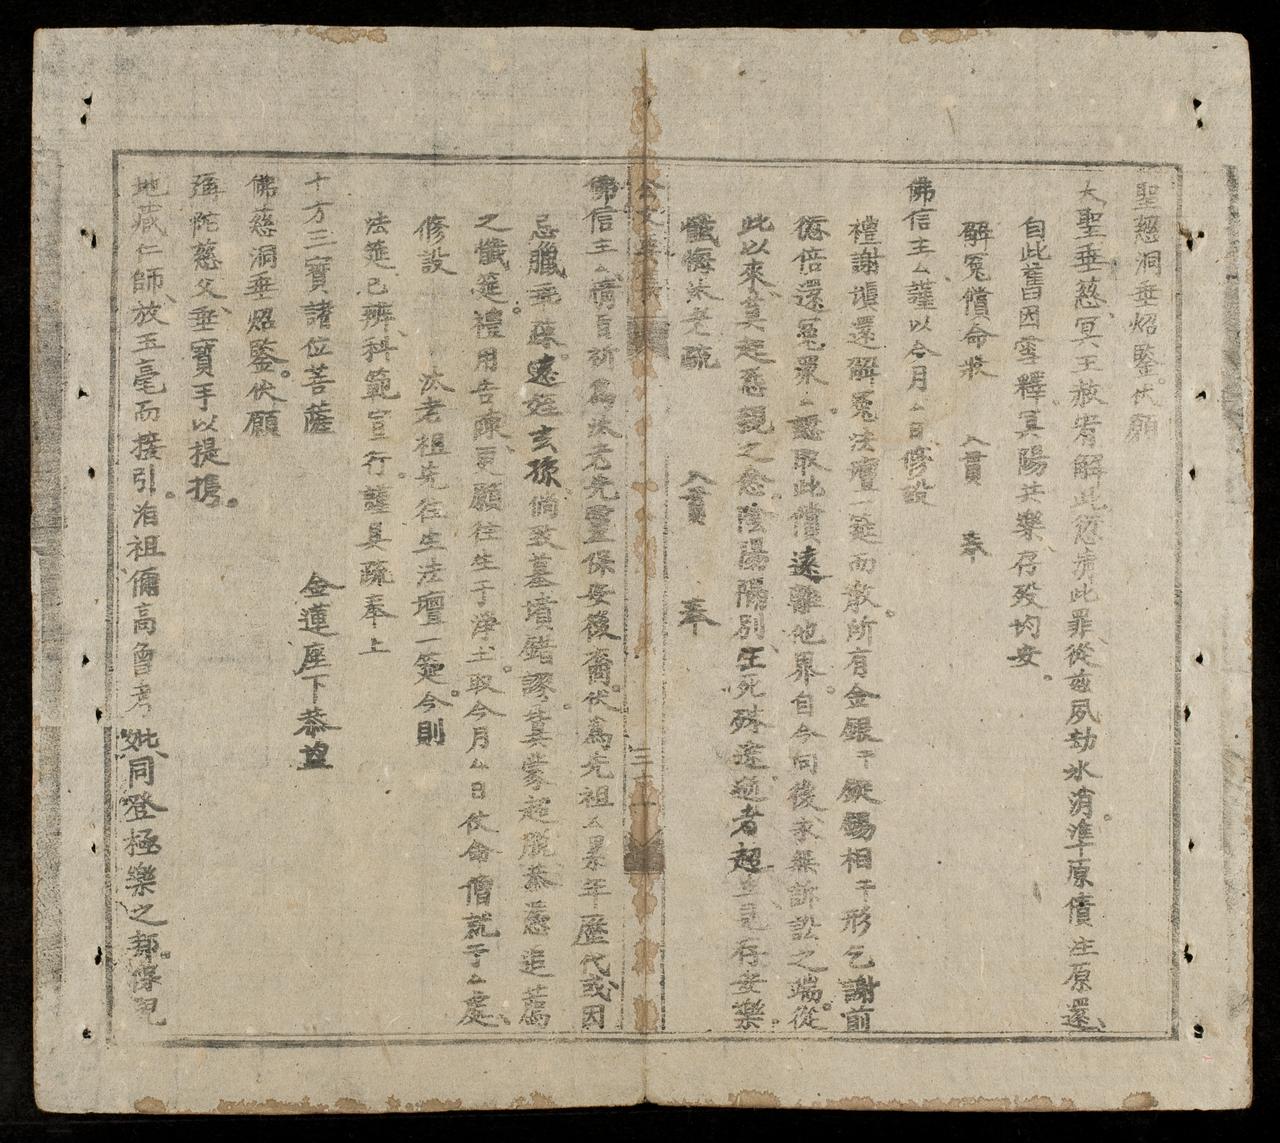 聖慈洞垂炤鑒。伏願
大聖垂慈、冥王赦宥解此愆痛此罪、從兹夙劫氷消、準原債主原還、
自此舊因雪釋、冥陽共樂、存殁均安。
解冤償命狀 入貫 奉
佛信主厶、謹以今月厶日修設
禮謝填還解冤法壇一筵而散。所有金銀干錠錫相干形乞謝前
愆倍還冤衆、認取此償、遠離他界。自今向後、永無訴訟之端。從
此以來、莫起 之念。陰陽隔別、生死殊途。逝者超 存安樂。
懺悔汰老疏 入貫 奉
佛信主厶 爲汰老先靈保安後裔。伏爲先祖厶累年歷代、或因
忌臘 疎。遠姪玄孫、倘致墓墳錯謬。冀蒙超脫、恭憑追薦
之懺筵。禮用告陳、更願往生于淨土。取今月厶日、仗命僧就于厶處、
修設 汰老祖先往生法壇一筵。今則
法筵已辨、科範宣行。謹具疏奉上
十方三寶諸位菩薩 金蓮座下恭望
佛慈洞垂炤鑒。伏願
彌陀慈父、垂寶手以提携。
地藏仁師、放玉毫而接引。 祖禰高曾考妣、同登極樂之邦。